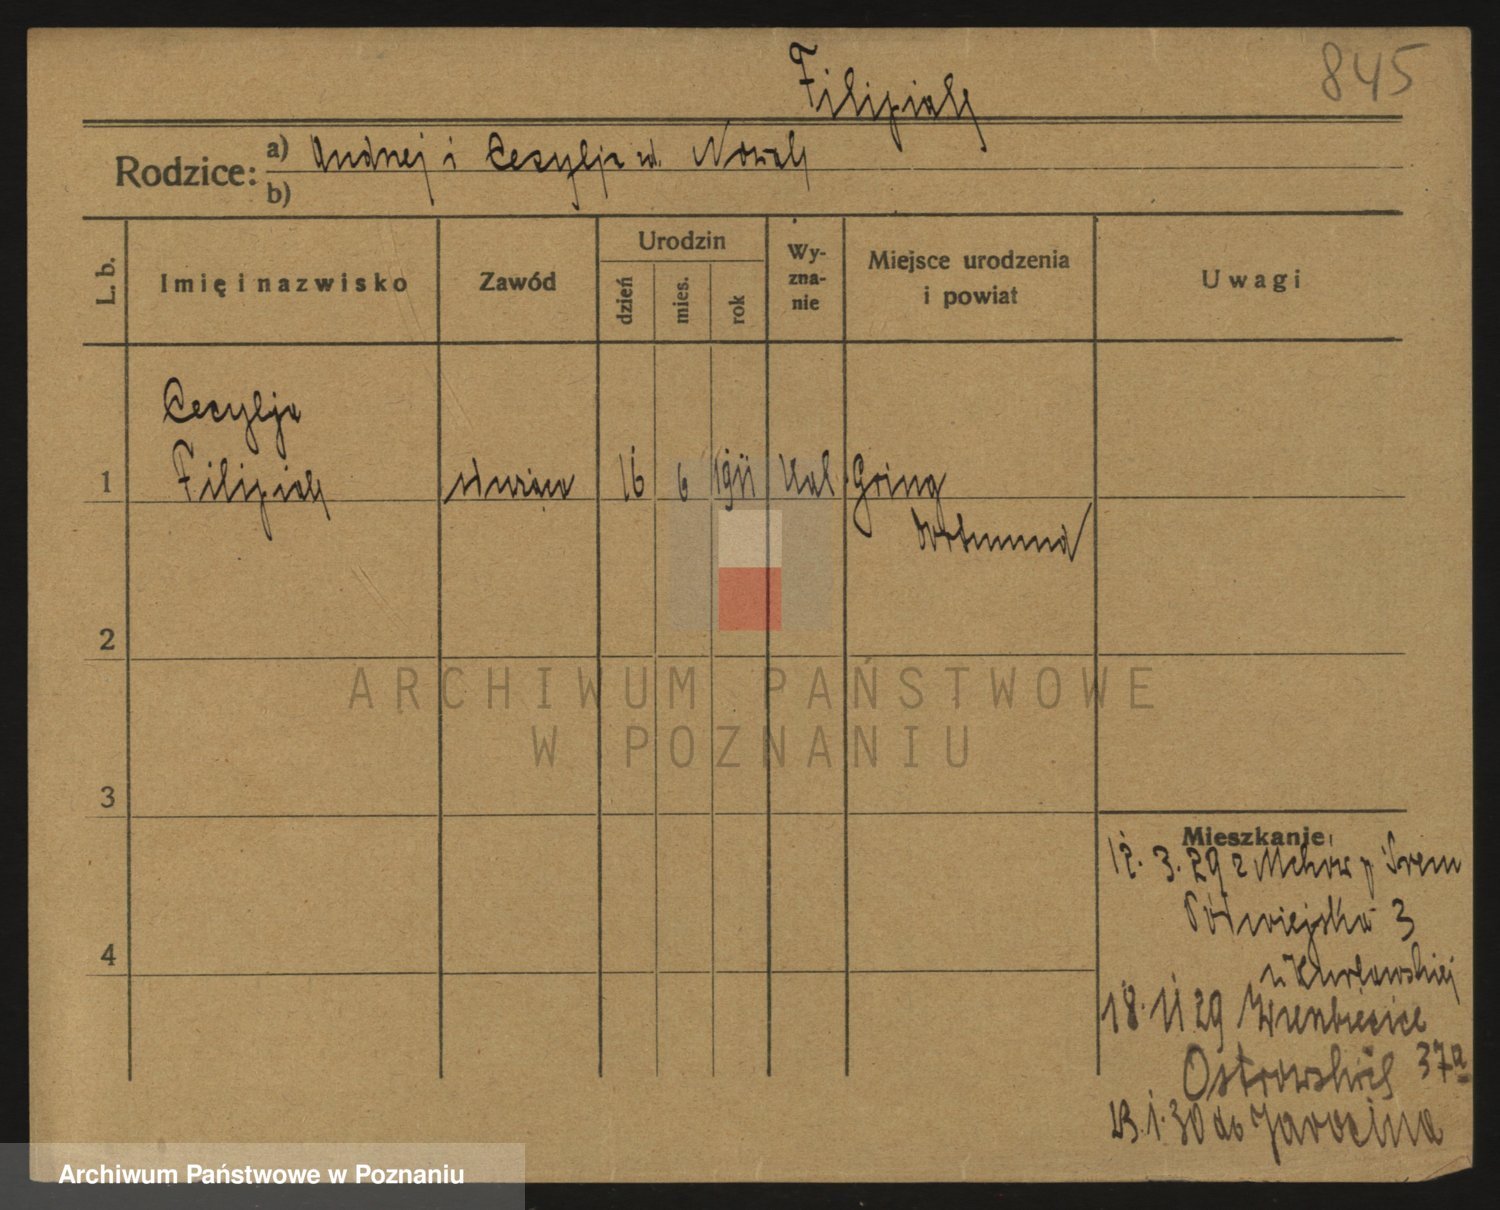 Filipiak
845
Rodzice: a) Andrzej i Cecylja zd. Nowak
b)
L. b.
Imię i nazwisko
Zawód
Urodzin
dzień
mies.
rok
Wy-
zna-
nie
Miejsce urodzenia
i powiat
Uwagi
Cecylja
1 Filipiak służąca 16 6 1911 kat Gring
Dortmund
2
ARCHIWUM PAŃSTWOWE
W POZNANIU
3
Mieszkanie
12. 3. 29 z Mchów p Śrem
Półwiejska 3
4
18. 11 29 Wierzbięcice 37a
Ostrowskich
23. 1. 30 do Jarocina
Archiwum Państwowe w Poznaniu